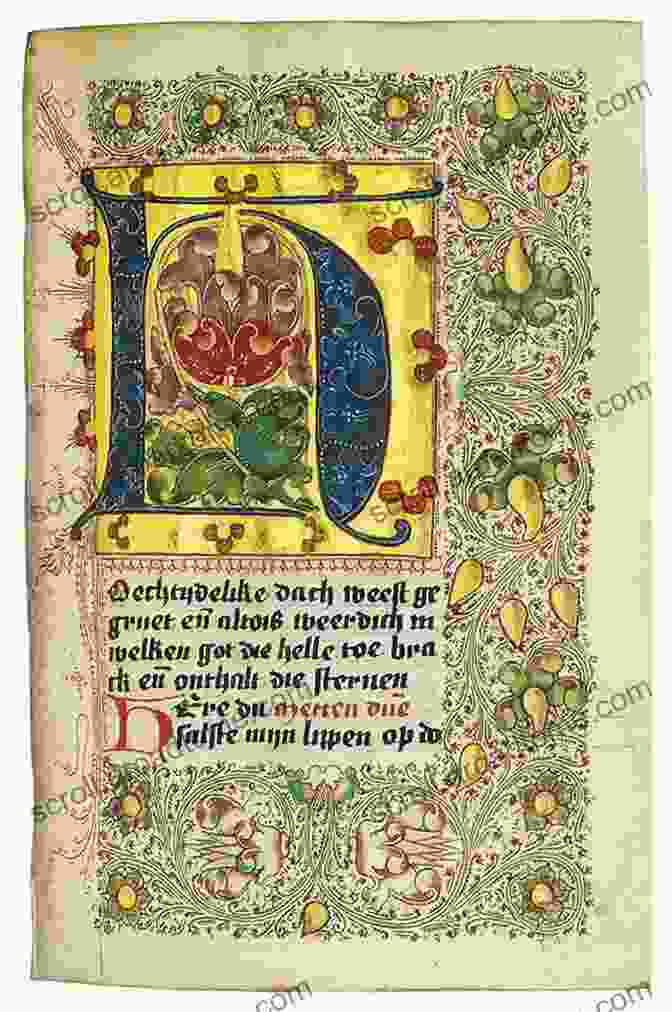 HOechtydelike dach weest ge
gruet eñ altois weerdich in
welken got die helle toe bra
ck eñ onthalt die sternen
HEre du metten
salste mijn lypen op do